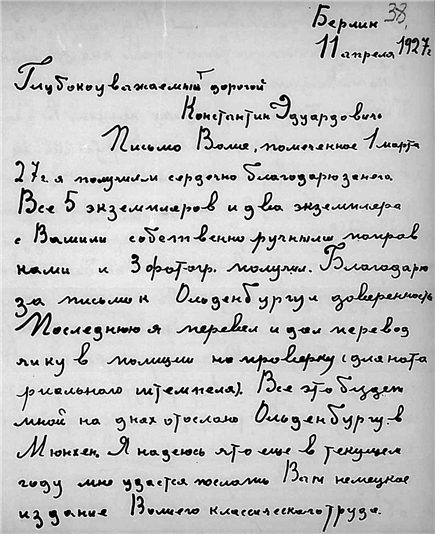 Берлин 38
11 апреля 1927г
Глубокоуважаемый дорогой
Константин Эдуардович
Письмо Ваше, помеченное 1 марта
27г. я получил и сердечно благодарю за него
Все 5 экземпляров и два экземпляра
с Вашими собственноручными поправ
ками и 3 фотогр. получил. Благодарю
за письмо к Ольденбургу и доверенность
Последнюю я перевел и дал перевод
чику в полиции на проверку (для нота
риального штемпеля). Все это будет
мной на днях отослано Ольденбургу в
Мюнхен. Я надеюсь что еще в текущем
году мне удастся послать Вам немецкое
издание Вашего классического труда.